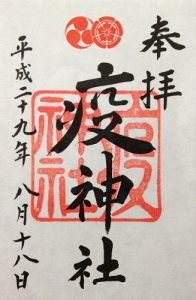 奉拝
疫神社
平成二十九年 八月十八日